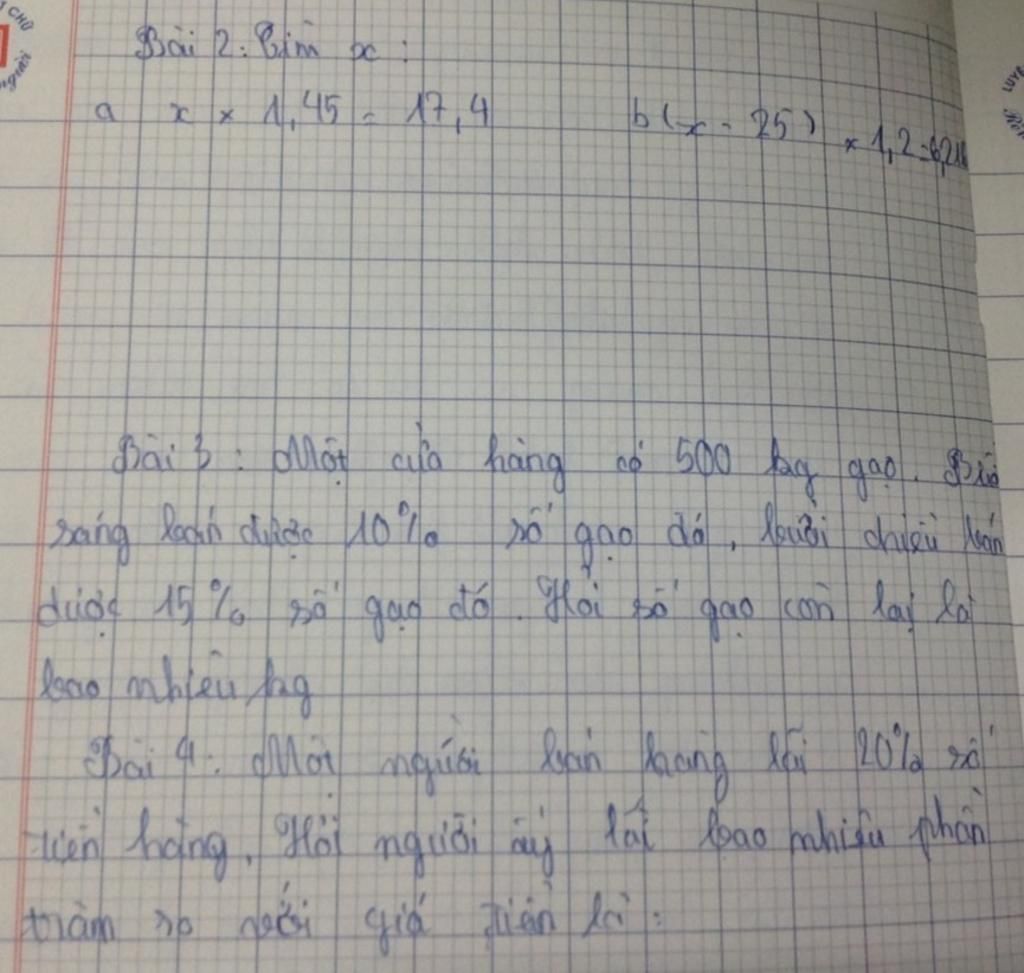 Bài 2: Tìm x :
a x × 1,45 = 17,4 b (x - 25) × 1,2 =
Bài 3 : Một cửa hàng có 500 kg gạo.
sáng bán được 10% số gạo đó, buổi chiều bán
được 15% số gạo đó. Hỏi số gạo còn lại là
bao nhiêu kg
Bài 4: Một người bán hàng lãi 20% số
tiền hàng. Hỏi người ấy lãi bao nhiêu phần
trăm so với giá tiền